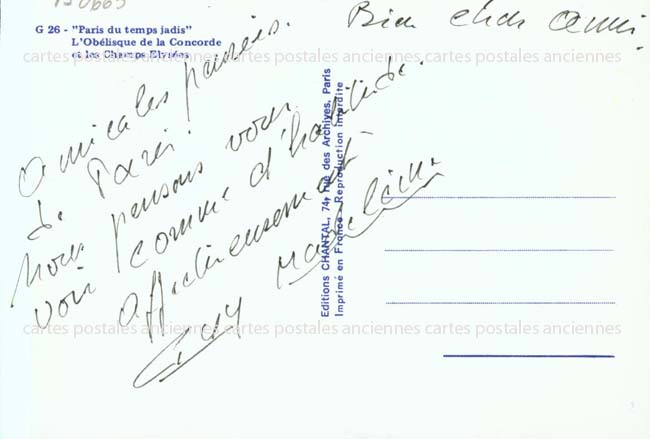 G 26 - "Paris du temps jadis"
L'Obélisque de la Concorde
et les Champs Elysées
Bien cher ami.
Amicales pensées.
de Paris!
Nous pensons vous
voir comme d'habitude.
Affectueusement
Guy Madeleine
Editions CHANTAL, 74, rue des Archives, Paris
Imprimé en France Reproduction interdite
cartes postales anciennes cartes postales anciennes cartes postales anciennes cartes postales anciennes
cartes postales anciennes cartes postales anciennes cartes postales anciennes cartes postales anciennes